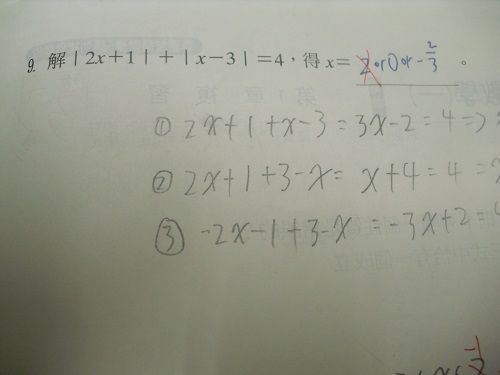 9. 解|2x+1|+|x-3|=4,得x= 2 or 0 or -2/3 。
① 2x+1+x-3=3x-2=4=>
② 2x+1+3-x= x+4=4=
③ -2x-1+3-x =-3x+2=